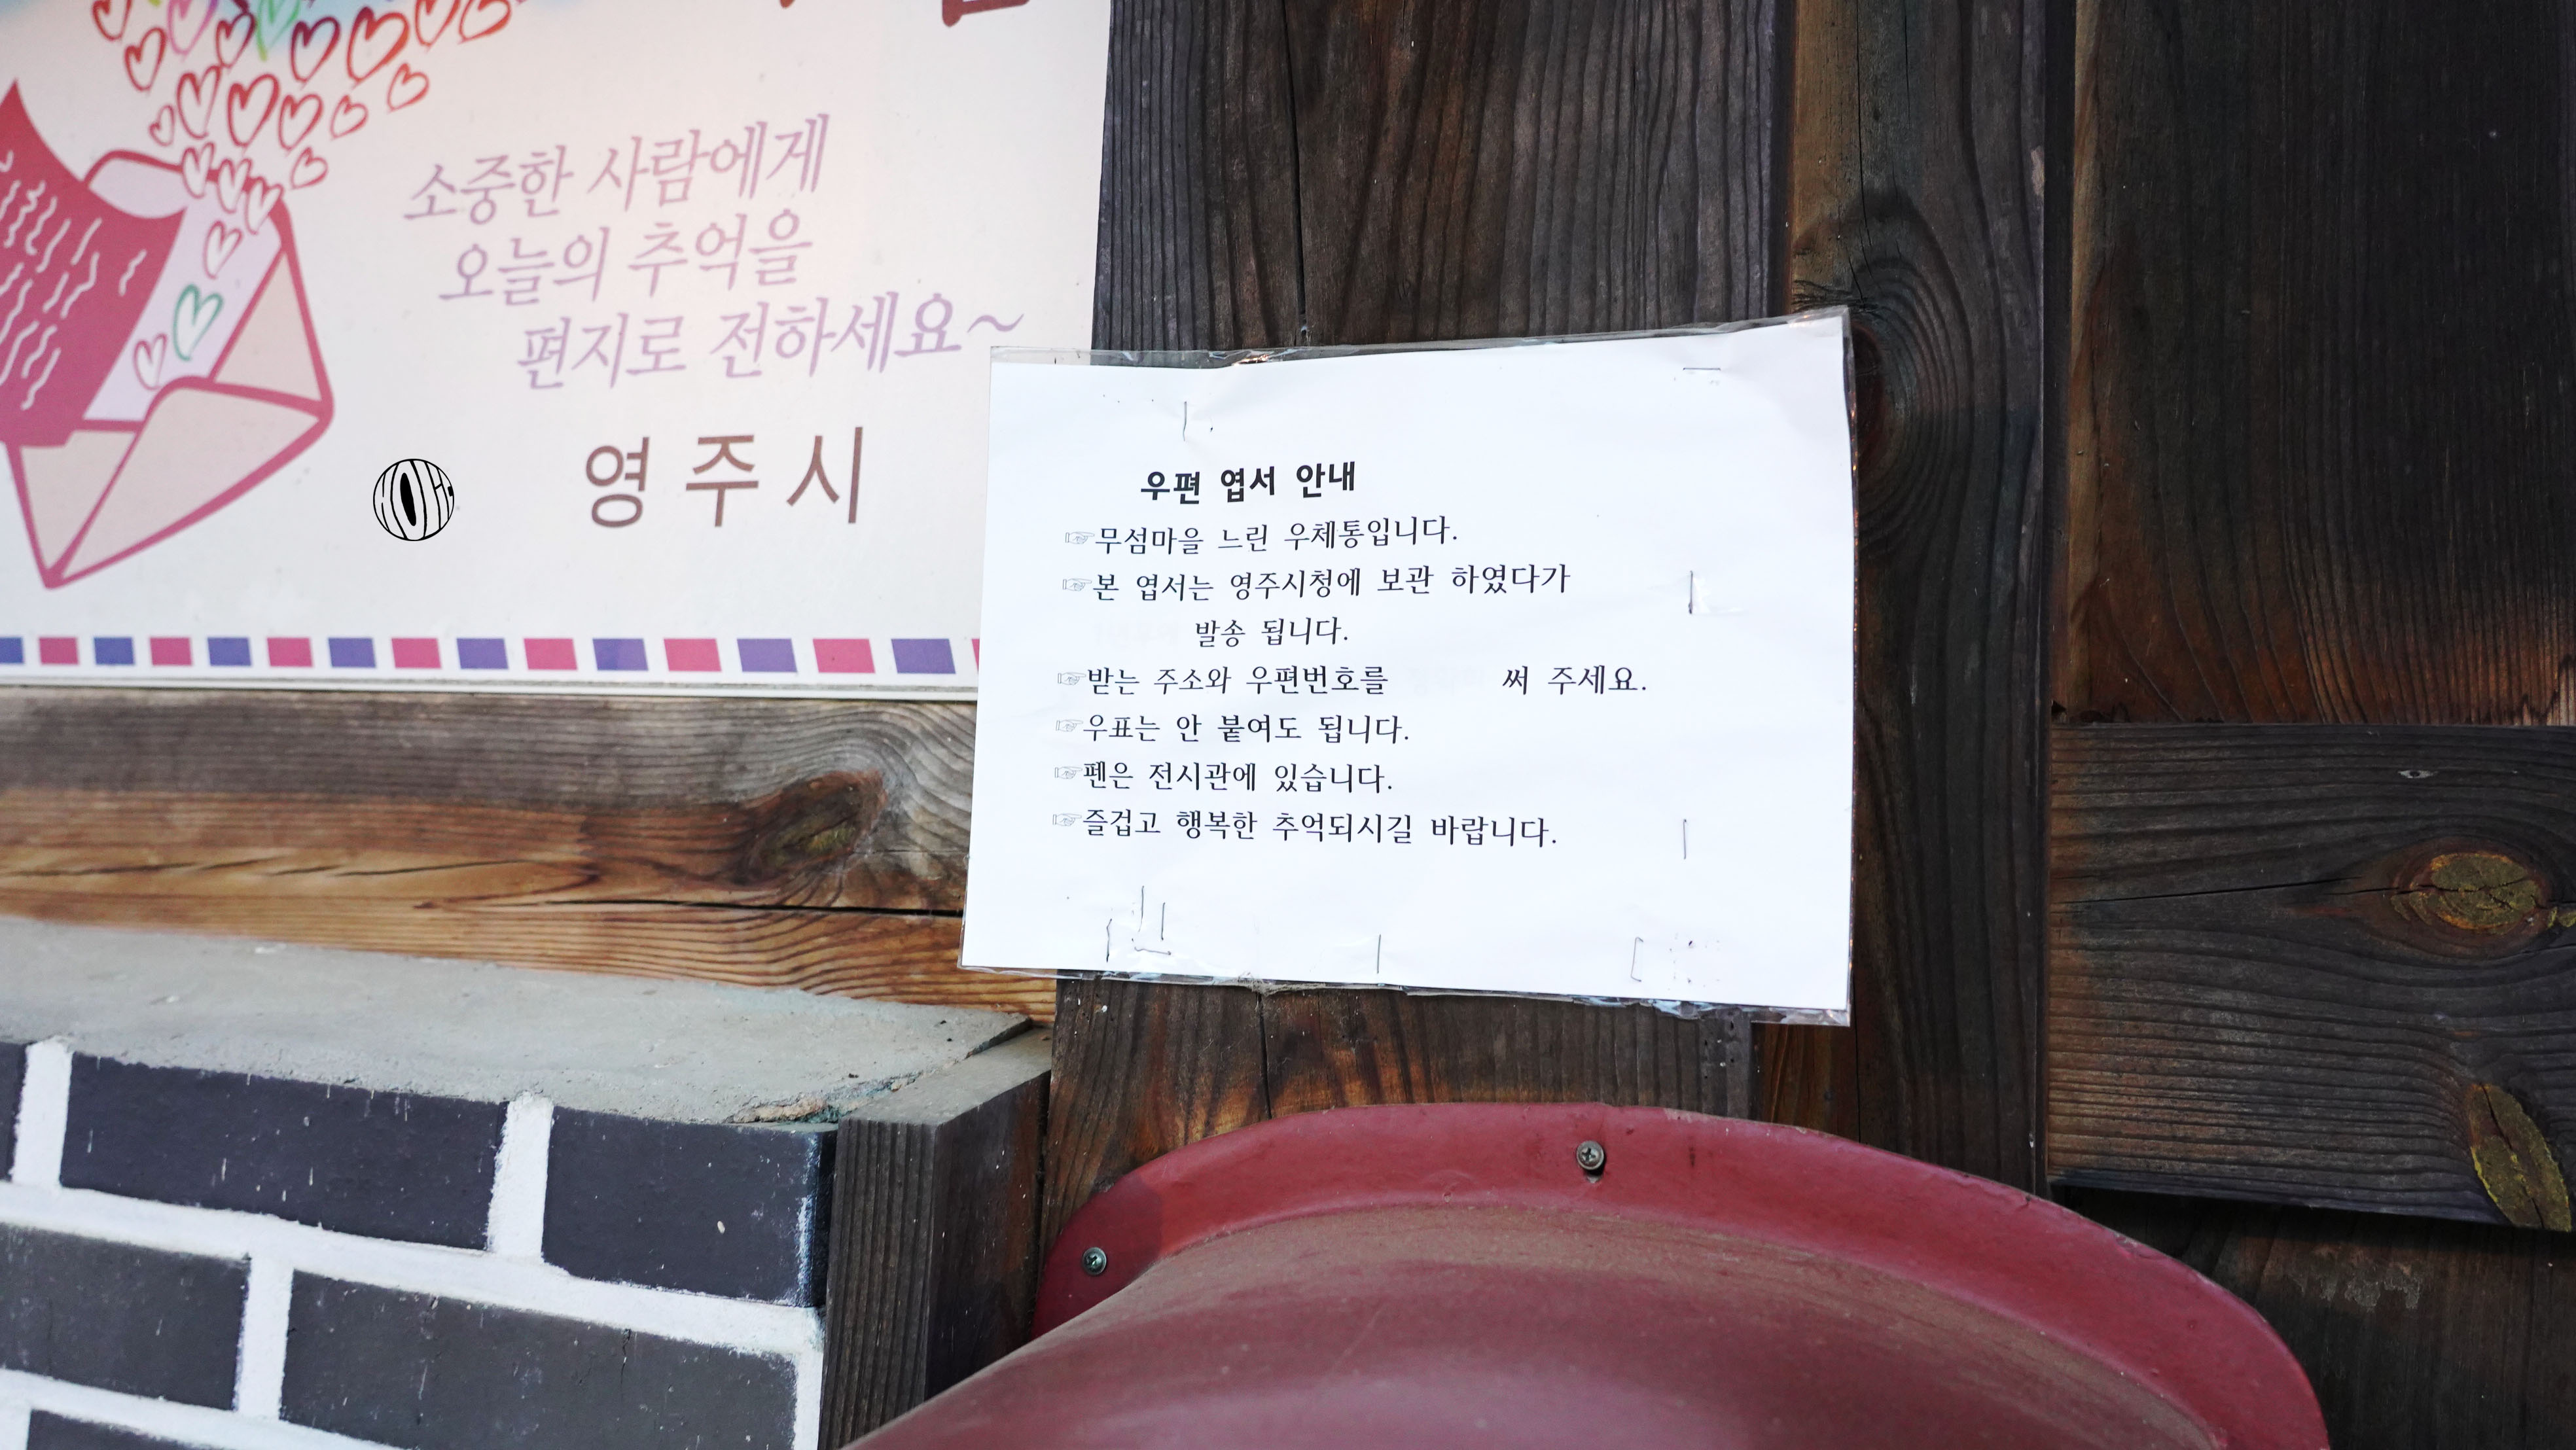 소중한 사람에게
오늘의 추억을
편지로 전하세요~
영주시
우편 엽서 안내
☞무섬마을 느린 우체통입니다.
☞본 엽서는 영주시청에 보관 하였다가
발송 됩니다.
☞받는 주소와 우편번호를 써 주세요.
☞우표는 안 붙여도 됩니다.
☞펜은 전시관에 있습니다.
☞즐겁고 행복한 추억되시길 바랍니다.